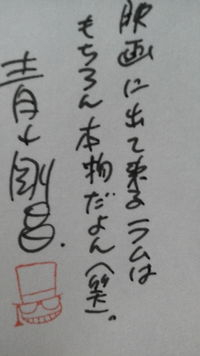 映画に出て来るラムは
もちろん本物だよん(笑)。
青山剛昌.